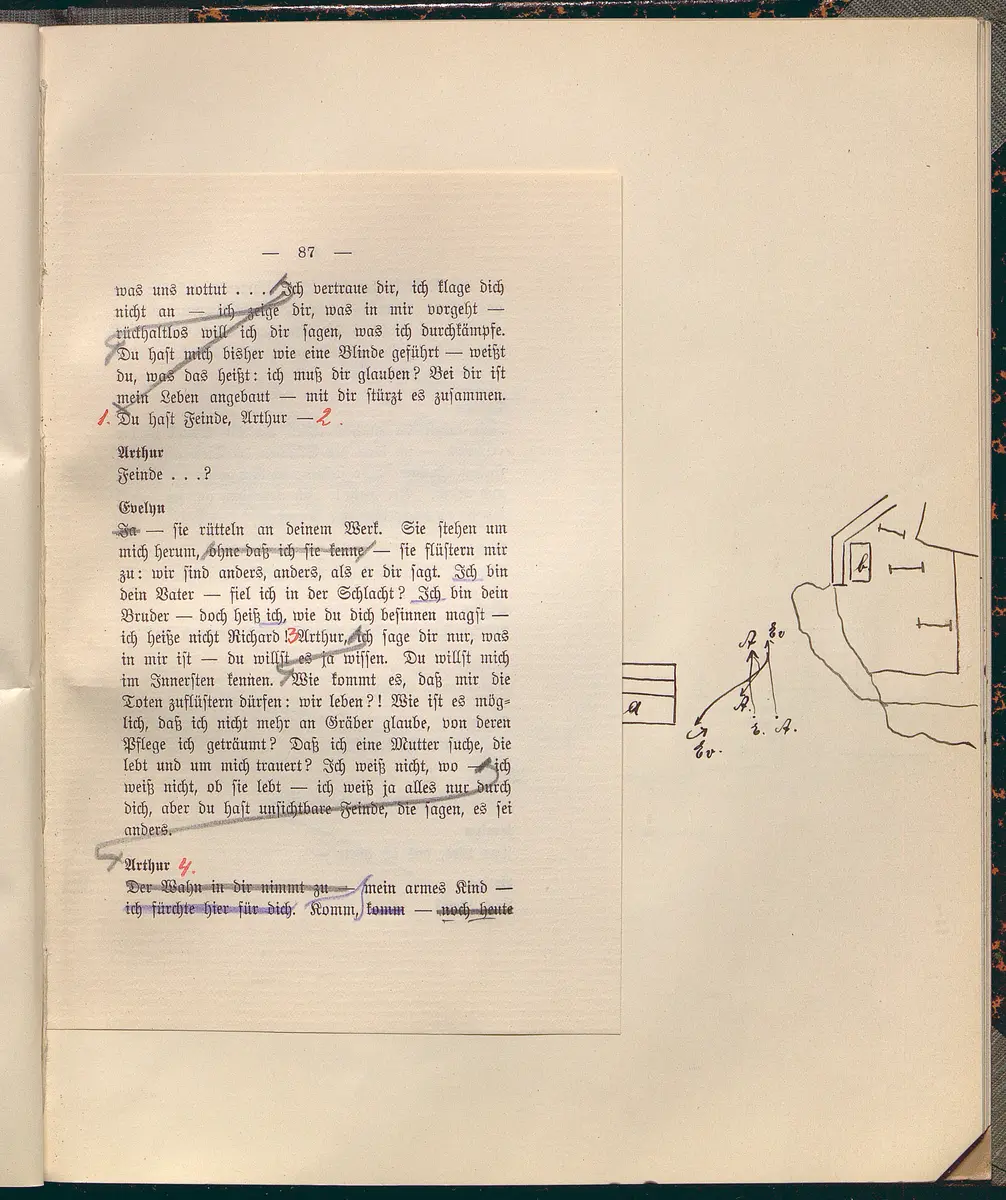 — 87 —
was uns nottut . . . Ich vertraue dir, ich klage dich
nicht an — ich zeige dir, was in mir vorgeht —
rückhaltlos will ich dir sagen, was ich durchkämpfe.
Du hast mich bisher wie eine Blinde geführt — weißt
du, was das heißt: ich muß dir glauben? Bei dir ist
mein Leben angebaut — mit dir stürzt es zusammen.
1. Du hast Feinde, Arthur — 2.
Arthur
Feinde . . .?
Evelyn
Ja — sie rütteln an deinem Werk. Sie stehen um
mich herum, ohne daß ich sie kenne — sie flüstern mir
zu: wir sind anders, anders, als er dir sagt. Ich bin
dein Vater — fiel ich in der Schlacht? Ich bin dein
Bruder — doch heiß ich, wie du dich besinnen magst —
ich heiße nicht Richard! 3 Arthur, ich sage dir nur, was
in mir ist — du willst es ja wissen. Du willst mich
im Innersten kennen. Wie kommt es, daß mir die
Toten zuflüstern dürfen: wir leben?! Wie ist es mög-
lich, daß ich nicht mehr an Gräber glaube, von deren
Pflege ich geträumt? Daß ich eine Mutter suche, die
lebt und um mich trauert? Ich weiß nicht, wo — ich
weiß nicht, ob sie lebt — ich weiß ja alles nur durch
dich, aber du hast unsichtbare Feinde, die sagen, es sei
anders.
Arthur 4.
Der Wahn in dir nimmt zu — mein armes Kind —
ich fürchte hier für dich. Komm, komm — noch heute
b
A. Ev
a
A.
E. A.
Ev.